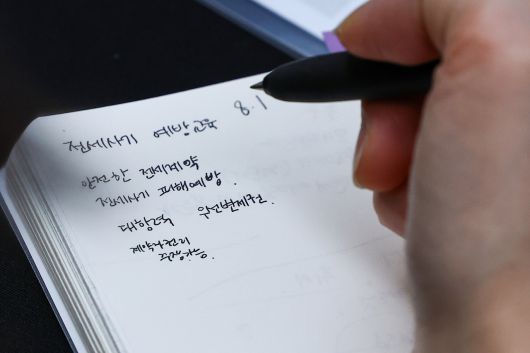 전세사기 예방교육 8.1
안전한 전세계약
전세사기 피해예방.
대항력 우선변제권.